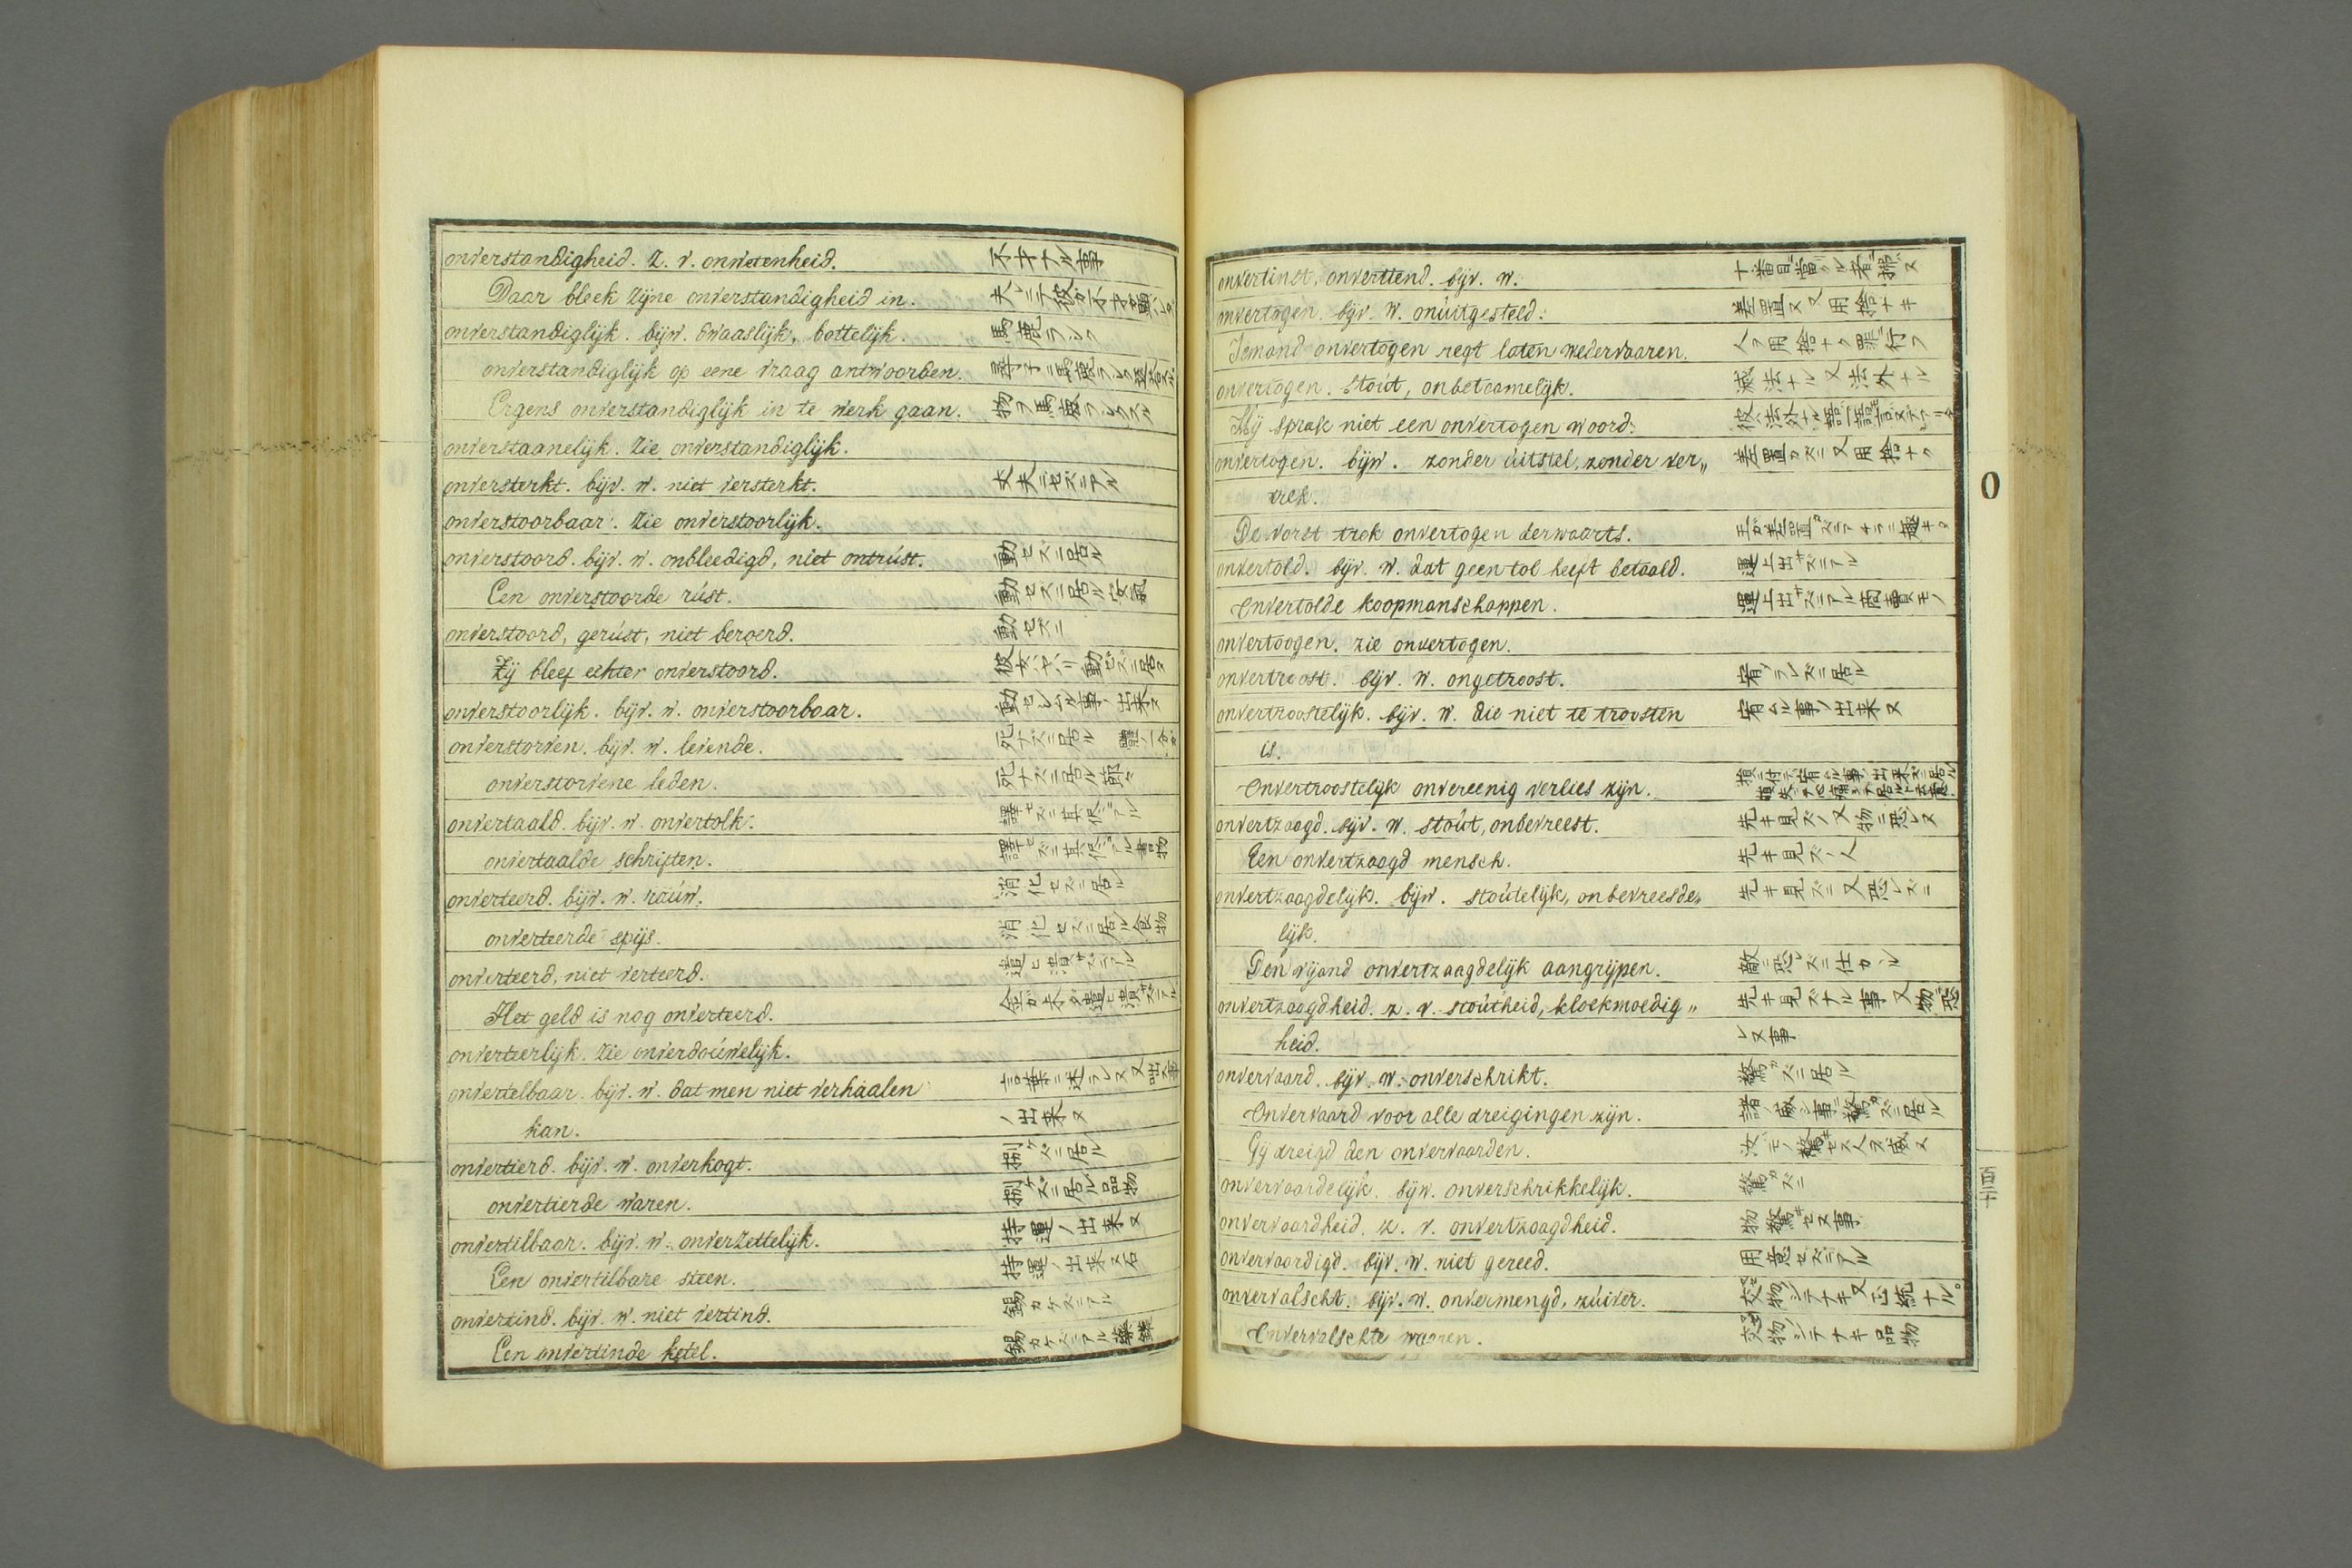 onverstandigheid. Z. v. onwetenheid. 不才ナル事
Daar bleek Zijne onverstandigheid in.
onverstandiglijk. bijw. dwaaslijk, bottelijk. 馬鹿ラシク
onverstandiglijk op eene vraag antwoorden.
Ergens onverstandiglijk in te werk gaan.
onverstaanelijk. Zie onverstandiglijk.
onversterkt. bijv. w. niet versterkt. 丈夫ニセズニアル
onverstoorbaar. Zie onverstoorlijk.
onverstoord. bijv. w. onbleedigd, niet ontrúst. 動セズニ居ル
Een onverstoorde rúst. 動セズニ居ル安氣
onverstoord, gerúst, niet beroerd. 動セズニ
Zij bleef echter onverstoord.
onverstoorlijk. bijv. w. onverstoorbaar.
onverstorven. bijv. w. levende. 死ナズニ居ル
onverstorvene leden.
onvertaald. bijv. w. onvertolk. 譯セズニ其侭アル
onvertaalde schriften. 譯セズニ其侭アル書物
onverteerd. bijv. w. raúw. 消化セズニ居ル
onverteerde spijs. 消化セズニ居ル食物
onverteerd, niet verteerd.
Het geld is nog onverteerd.
onverteerlijk. Zie onverdoúwelijk.
onvertelbaar. bijv. w. dat men niet verhaalen
kan. ノ出来ヌ
onvertierd. bijv. w. onverkogt. 捌ケズニ居ル
onvertierde waren. 捌ケズニ居ル品物
onvertilbaar. bijv. w. onverzettelijk. 持運ノ出来ヌ
Een onvertilbare steen. 持運ノ出来ヌ石
onvertind. bijv. w. niet vertind. 錫カケズニアル
Een onvertinde ketel.
onvertindt, onvertiend. bijv. w.
onvertogen. bijv. w. onúitgesteld. 差置ヌ又用捨ナキ
Iemand onvertogen regt laten wedervaaren. 人ヲ用捨ナク罪行フ
onvertogen. stoút, onbetaamelijk.
Hij sprak niet een onvertogen woord.
onvertogen. bijw. zonder úitstel, zonder ver„ 差置カズニ又用捨ナク
trek.
De vorst trok onvertogen derwaarts.
onvertold. bijv. w. dat geen tol heeft betaald. 運上出サズニアル
onvertolde koopmanschappen. 運上出サズニアル商賣モノ
onvertoogen. zie onvertogen.
onvertroost. bijv. w. ongetroost. 宥ラレズニ居ル
onvertroostelijk. bijv. w. die niet te troosten 宥ムル事ノ出来ヌ
is.
Onvertroostelijk onvereenig verlies zijn.
onvertzaagd. bijv. w. stoút, onbevreest. 先キ見ズノ又物ニ恐レヌ
Een onvertzaagd mensch. 先キ見ズノ人
onvertzaagdelijk. bijw. stoútelijk, onbevreesde„ 先キ見ズニ又恐レズニ
lijk.
Den vijand onvertzaagdelijk aangrijpen. 敵ニ恐レズニ仕カヽル
onvertzaagdheid. z. v. stoútheid, kloekmoedig„ 先キ見ズナル事又物ニ恐
heid. レヌ事
onvervaard. bijv. w. onverschrikt. 驚カズニ居ル
Onvervaard voor alle dreigingen zijn.
Gij dreigd den onvervaarden.
onvervaardelijk. bijw. onverschrikkelijk. 驚カズニ
onvervaardheid. z. v. onvertzaagdheid.
onvervaardigd. bijv. w. niet gereed. 用意セズニアル
onvervalscht. bijv. w. onvermengd, zúiver.
Onvervalschte waaren.
O
百二十